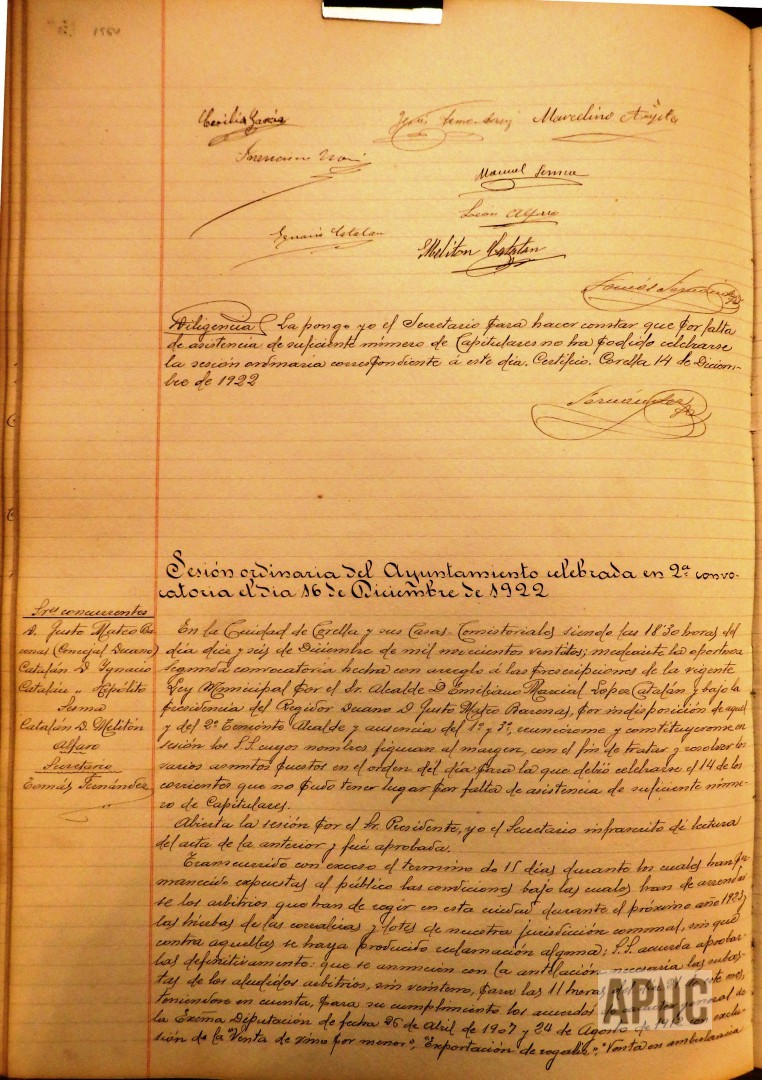 Cecilio García
Marcelino
Manuel Sesma
León Alfaro
Ignacio Catalán
Meliton Catalán
Tomás Fernández
Diligencia La pongo yo el Secretario para hacer constar que por falta
de asistencia de suficiente número de Capitulares no ha podido celebrarse
la sesión ordinaria correspondiente á este día. Certifico. Corella 14 de Diciem-
bre de 1922
Fernández
Sesión ordinaria del Ayuntamiento celebrada en 2ª convo-
catoria el día 16 de Diciembre de 1922
Sres concurrentes
D. Justo Mateo Ba
ronas (Concejal Decano)
Catalán D. Ygnacio
Catalán " Hipólito
Sesma
Catalán D. Melitón
Alfaro
Secretario
Tomás Fernández
En la Ciudad de Corella y sus Casas Consistoriales siendo las 18'30 horas del
día diez y seis de Diciembre de mil novecientos veintidos; mediante la oportuna
segunda convocatoria hecha con arreglo á las prescripciones de la vigente
Ley Municipal por el Sr. Alcalde D. Emiliano Marcial López Catalán y bajo la
presidencia del Regidor Decano D. Justo Mateo Baronas, por indisposición de aquel
y del 2º Teniente Alcalde y ausencia del 1º y 3º, reunieronse y constituyeronse en
sesión los S.S. cuyos nombres figuran al margen, con el fin de tratar y resolver los
varios asuntos puestos en el orden del día para la que debió celebrarse el 14 de los
corrientes que no pudo tener lugar por falta de asistencia de suficiente núme-
ro de Capitulares.
Abierta la sesión por el Sr. Presidente, yo el Secretario infrascrito dí lectura
del acta de la anterior y fué aprobada.
Transcurrido con exceso el termino de 15 días durante los cuales han per
manecido expuestas al público las condiciones bajo las cuales han de arrendar
se los arbitrios que han de regir en esta ciudad durante el próximo año 1923 y
las hierbas de las corralizas y lotes de nuestra jurisdicción comunal, sin que
contra aquellas se haya producido reclamación alguna; S.S. acuerda aprobar-
las definitivamente: que se anuncien con la antelación necesaria las subas-
tas de los aludidos arbitrios, sin veinteno, para las 11 horas del día de este mes,
teniéndose en cuenta, para su cumplimiento los acuerdos general de
la Exma Diputación de fecha 26 de Abril de 1907 y 24 de Agosto de con exclu-
sión de la "Venta de vino por menor", "Exportación de regaliz", "Venta en ambulancia
APHC